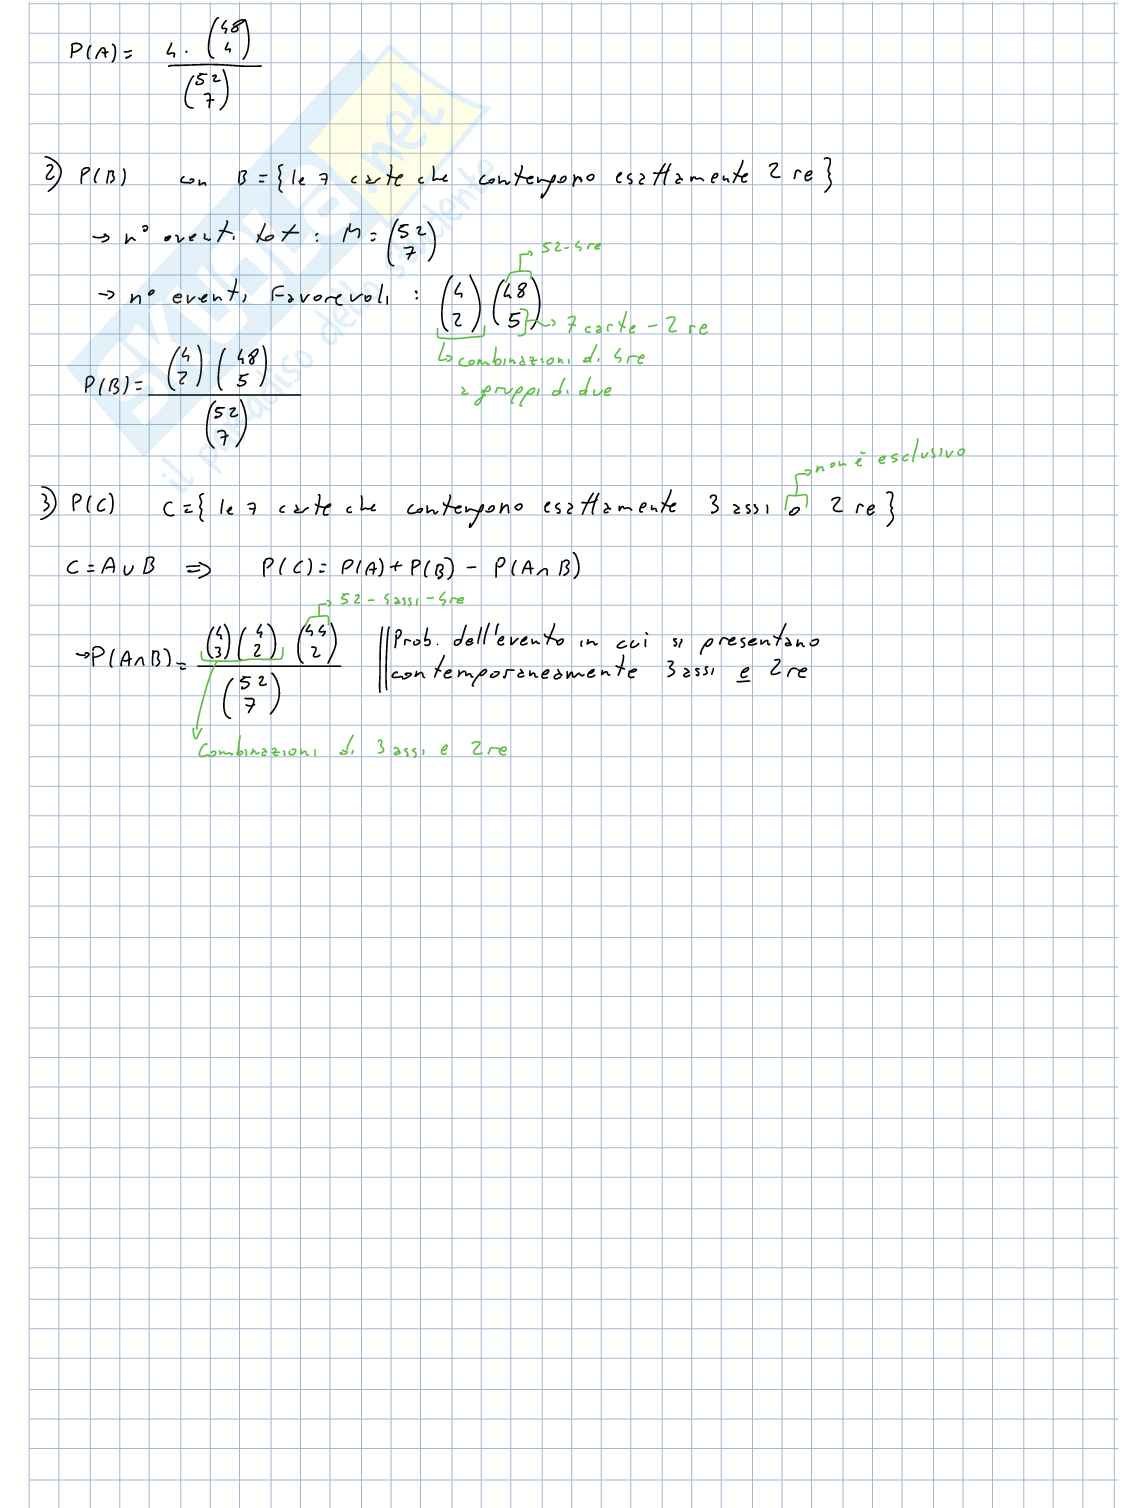 P(A) = 4 · (48 4) / (52 7)
2) P(B) con B = { le 7 carte che contengono esattamente 2 re }
→ n° eventi tot : M = (52 7)
52-4re
→ n° eventi Favorevoli : (4 2) (48 5)
→ 7 carte - 2 re
↳ combinazioni di 4re
a gruppi di due
P(B) = (4 2) (48 5) / (52 7)
non è esclusivo
3) P(C) C = { le 7 carte che contengono esattamente 3 assi o 2 re }
C = A ∪ B ⇒ P(C) = P(A) + P(B) - P(A ∩ B)
52 - 4assi - 4re
→ P(A ∩ B) = (4 3) (4 2) (44 2) / (52 7)
Prob. dell'evento in cui si presentano
contemporaneamente 3 assi e 2 re
Combinazioni di 3 assi e 2 re
SKUOLA.net
il paradiso dello studente